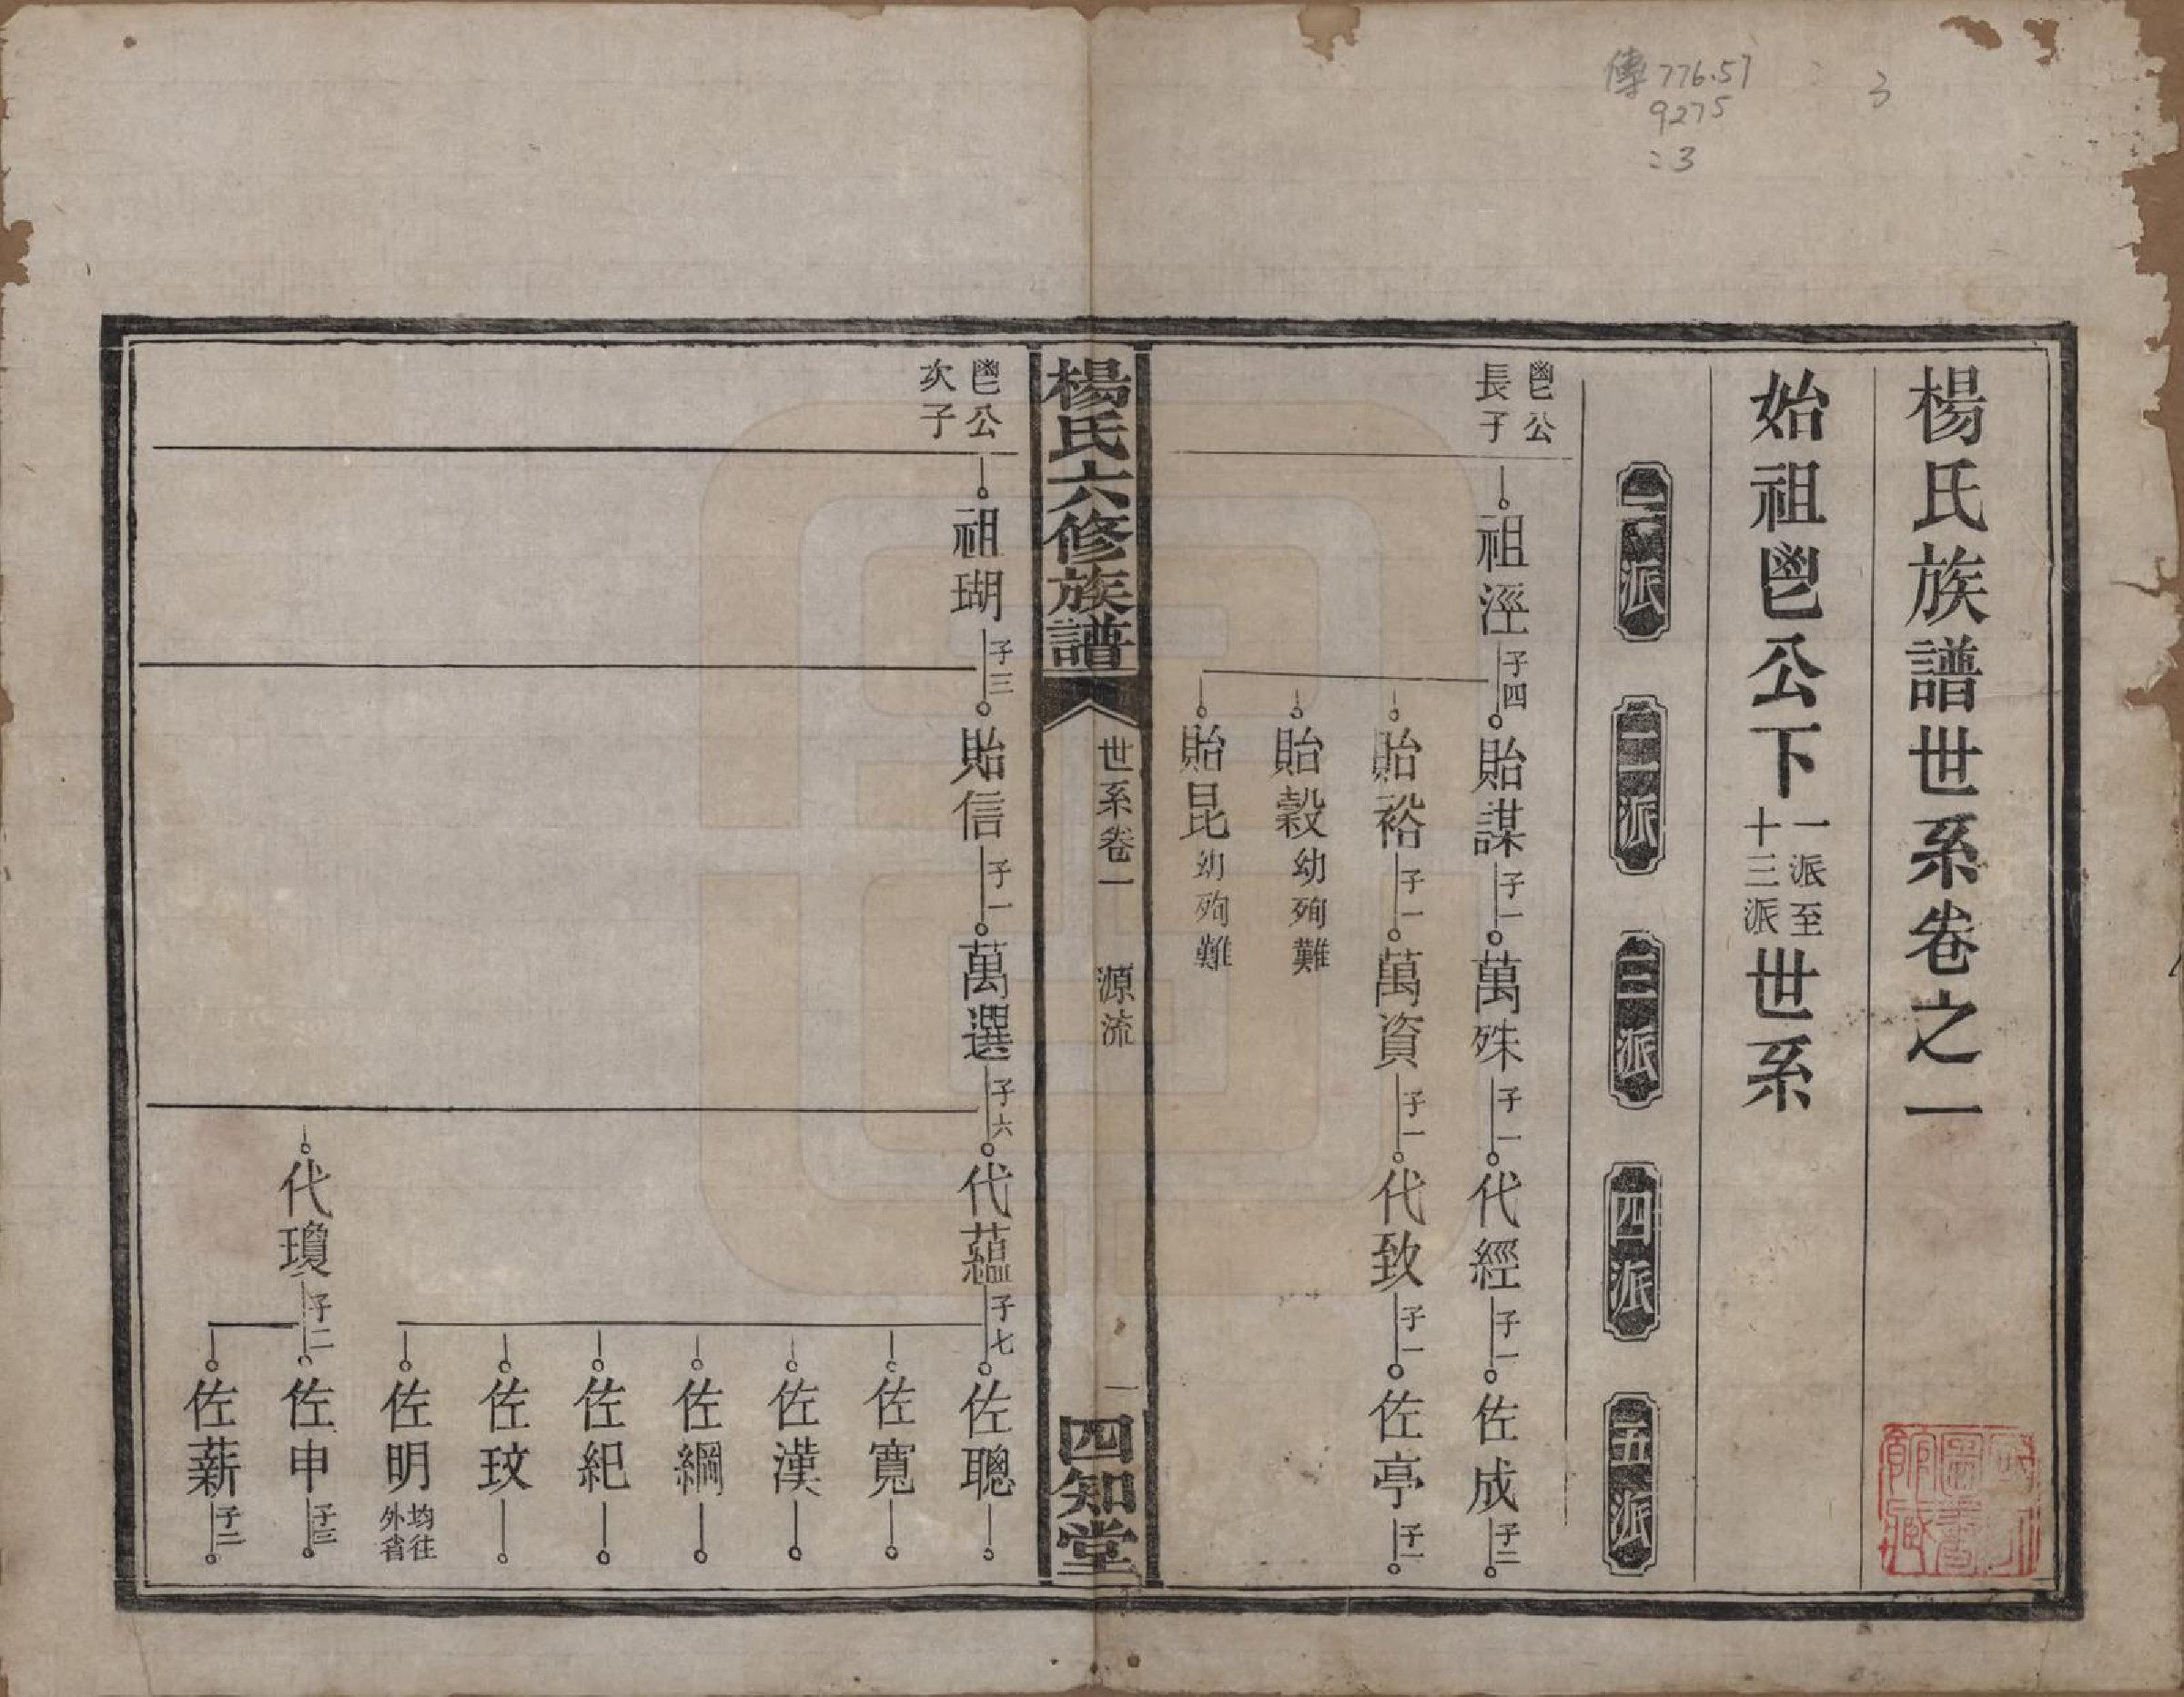 傳776.57
9275
:3
3
楊氏族譜世系卷之一
始祖鬯公下一派至十三派世系
一派
二派
三派
四派
五派
鬯公
長子
祖涇 子四
貽謀 子一
萬殊 子一
代經 子一
佐成 子二
貽裕 子一
萬資 子一
代致 子一
佐亭 子一
貽穀 幼殉難
貽昆 幼殉難
楊氏六修族譜
世系卷一 源流
一
四知堂
鬯公
次子
祖瑚 子三
貽信 子一
萬選 子六
代蘊 子七
佐聰
佐寬
佐漢
佐綱
佐紀
佐玟
佐明 均往外省
代瓊 子二
佐申 子三
佐薪 子二